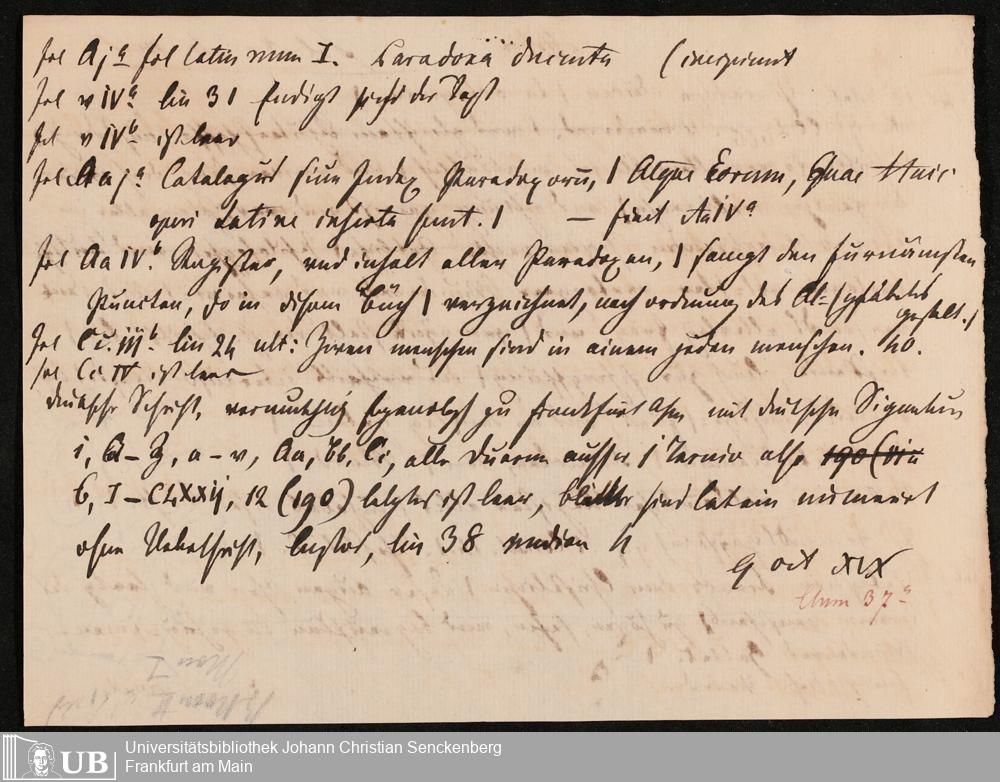 fol Aj a fol latin num I. Paradoxa ducenta (incipiunt
fol v iv a lin 31 Endigt sich der Text
fol v iv b ist leer
fol Aa j a Catalogus siue Index Paradoxorū, | Atque Eorum, Quae Huic
operi Latine inserta sunt. | — finit Aa iv a
fol Aa iv b. Register, vnd inhalt aller Paradoxen, | sampt den furnämsten
Puncten, so in disem Büch | verzeichnet, nach ordnung des Al= | phabets
gestelt. |
fol Cc. iij b. lin 24 ult: Zween menschen sind in einem jeden menschen. 40.
fol Cc. iv ist leer
deutsche Schrift, vermuthlich Egenolph zu Frankfurt a/m mit deutschen Signaturen
i, A – Z, a – v, Aa, bb, Cc, alle Duern ausser j Ternio also
6, I – CLXXij, 12 (190) letztes ist leer, blätter sind latein numerirt
ohne Ueberschrift, Custos, lin 38
q oct XIX
Num 37 a
UB
Universitätsbibliothek Johann Christian Senckenberg
Frankfurt am Main